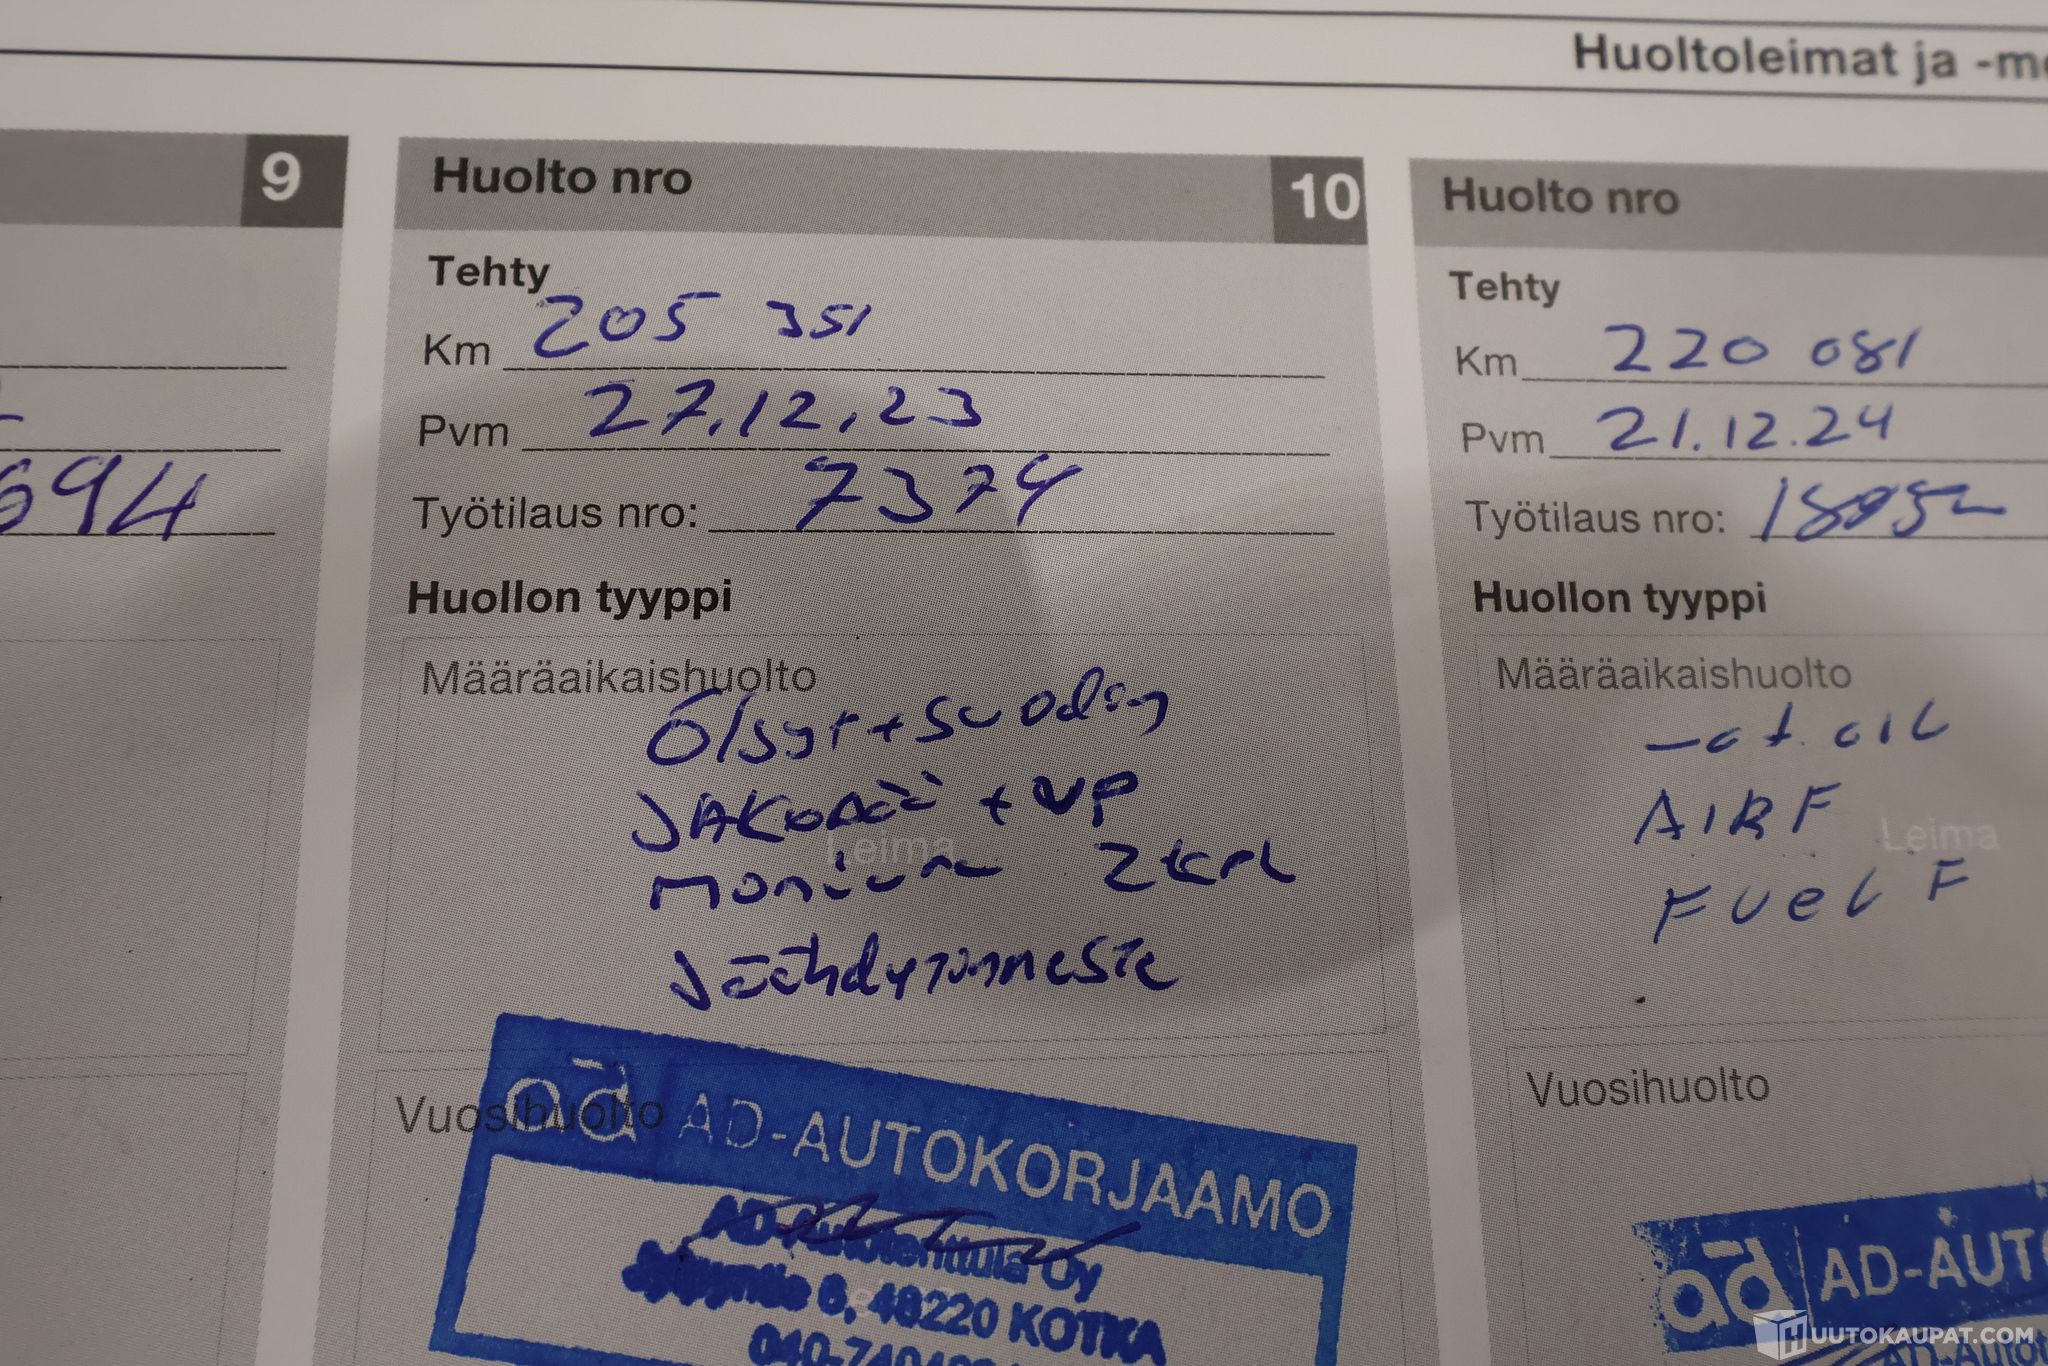 Huoltoleimat ja -me
9
694
Huolto nro 10
Tehty
Km 205 351
Pvm 27.12.23
Työtilaus nro: 7374
Huollon tyyppi
Määräaikaishuolto
Öljyt + suodin
JAKOPÄÄ + VP
MONIURA 2 KPL
Leima
Jäähdytinneste
Vuosihuolto
ad AD-AUTOKORJAAMO
Oy
6, 48220 KOTKA
Huolto nro
Tehty
Km 220 081
Pvm 21.12.24
Työtilaus nro:
Huollon tyyppi
Määräaikaishuolto
OIL
AIR F
Leima
FUEL F
Vuosihuolto
ad AD-AUTO
HUUTOKAUPAT.COM